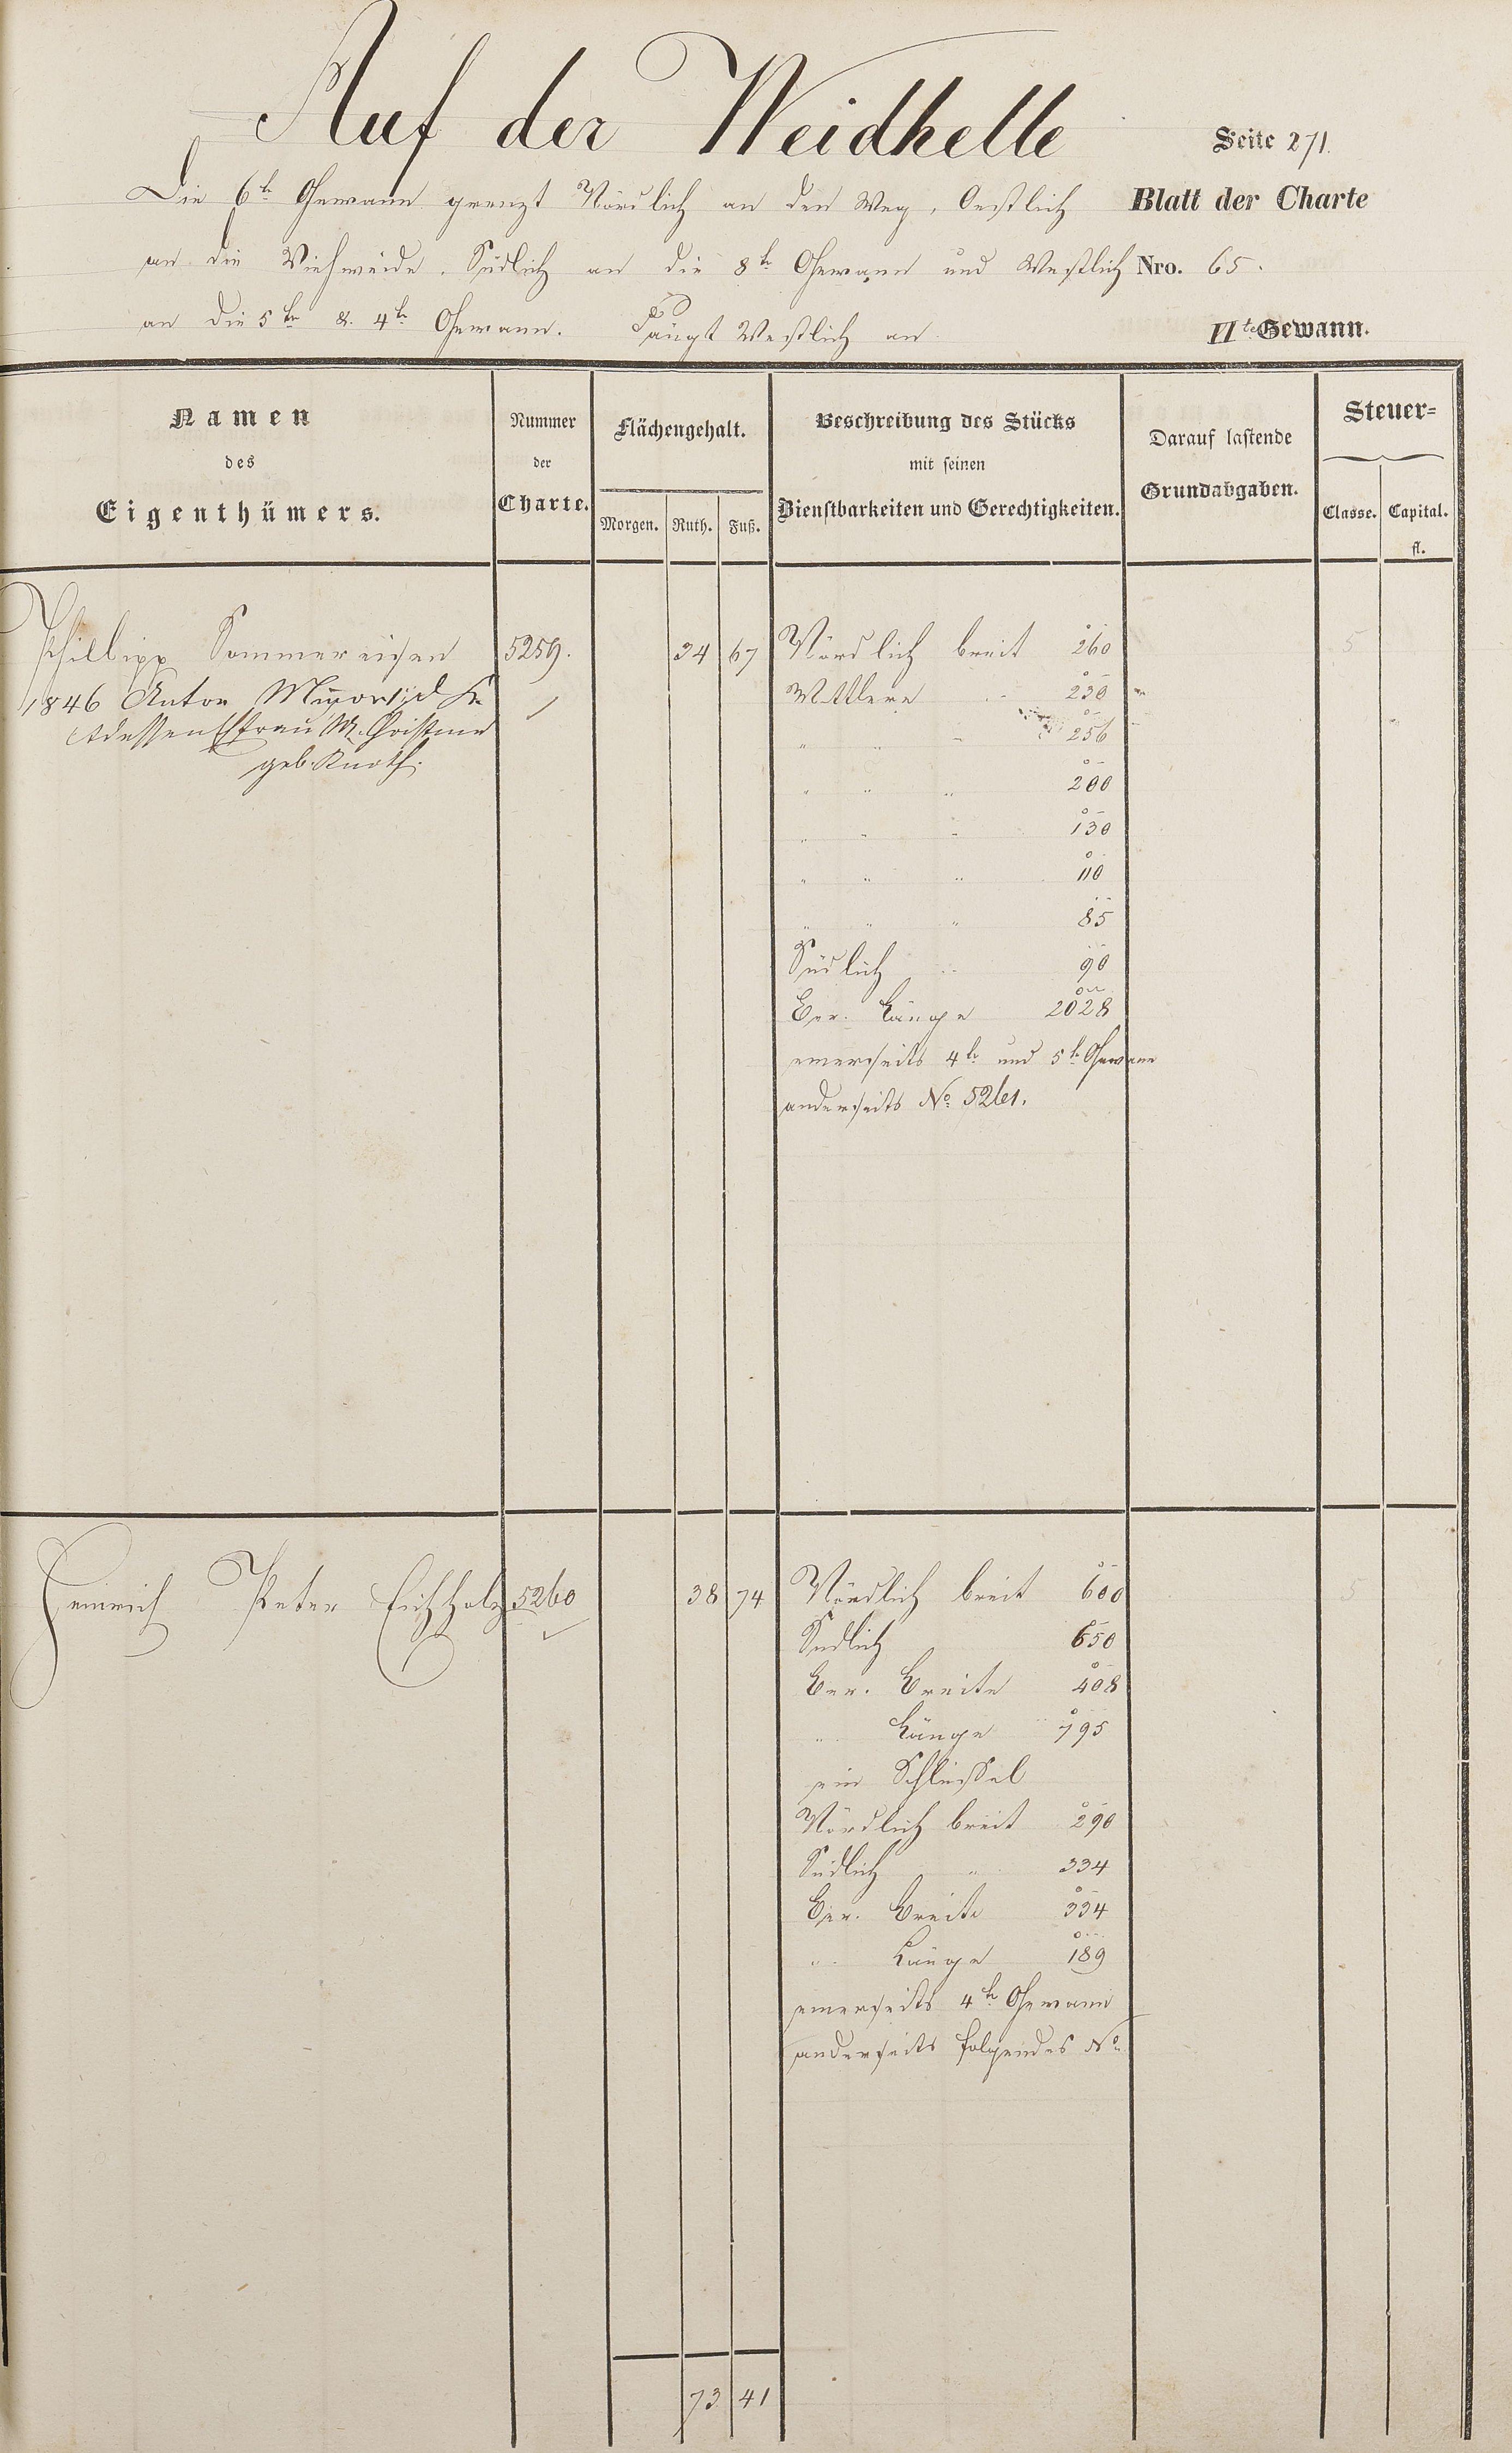 Auf der Weidhelle
Seite 271.
Die 6te Gewann grenzt Nördlich an den Weg, Oestlich
Blatt der Charte
an die Viehweide. Südlich an die 8te Gewann und Westlich
Nro. 65.
an die 5te & 4te Gewann. Fängt Westlich an
VIte Gewann.
Namen
des
Eigenthümers.
Nummer
der
Charte.
Flächengehalt.
Morgen. Ruth. Fuß.
Beschreibung des Stücks
mit seinen
Dienstbarkeiten und Gerechtigkeiten.
Darauf lastende
Grundabgaben.
Steuer=
Classe. Capital.
fl.
Phillipp Sommereisen 5259. 34 67 Nördlich breit 260 5
1846 Anton
Mittlere 230
dessen Efrau M. Christine
" " " 256
geb. Knoth.
" " " 200
" " " 130
" " " 110
" " " 85
Südlich " 90
Ber. Länge 2028
einerseits 4te und 5te Gewann
anderseits No. 5261.
Heinrich Peter Eichholz 5260 38 74 Nördlich breit 600 5
Südlich 650
Ber. Breite 408
" Länge 795
ein Schlüssel
Nördlich breit 290
Südlich " 334
Ber. Breite 334
" Länge 189
einerseits 4te Gewann
anderseits folgendes No.
73 41